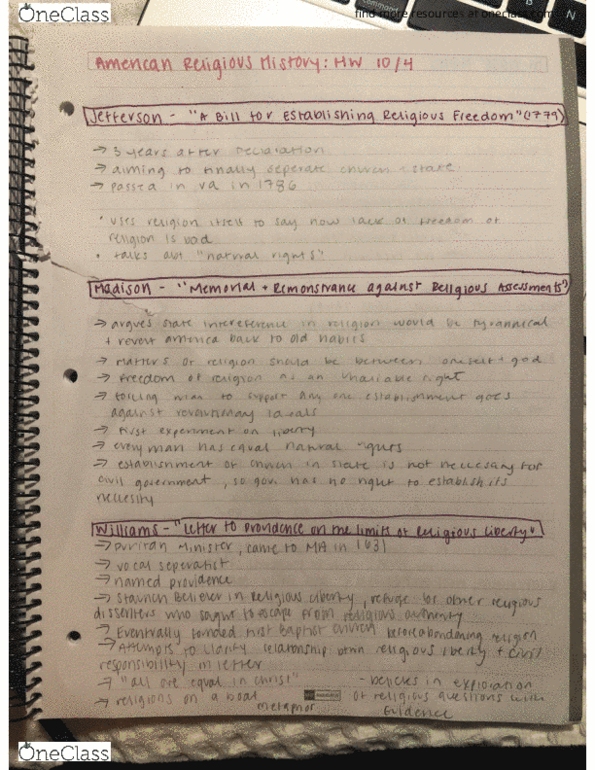 OneClass
find more resources at oneclass.com
American Religious History: HW 10/4
Jefferson - "A Bill for Establishing Religious Freedom" (1779)
→ 3 years after Declaration
→ aiming to finally seperate church + state
→ passed in va in 1786
• uses religion itself to say how lack of freedom of
religion is bad
• talks abt "natural rights"
Madison - "Memorial + Remonstrance against Religious Assessments"
→ argues state intereference in religion would be tyrannical
+ revert america back to old habits
→ matters of religion should be between oneself + god
→ freedom of religion as an unaliable right
→ forcing man to support any one establishment goes
against revolutionary ideals
→ first experiment on liberty
→ every man has equal natural rights
→ establishment of church in state is not neccessary for
civil government, so gov has no right to establish its
necessity
Williams - "Letter to Providence on the limits of Religious Liberty"
→ puritan minister, came to MA in 1631
→ vocal seperatist
→ named providence
→ staunch Believer in Religious Liberty, refuge for other religious
dissenters who sought to escape from religious authority
→ Eventually founded First Baptist Church before abandoning religion
→ Attempts to clarify relationship btwn religious liberty + civil
responsibility in letter
→ "all are equal in christ" - believes in exploration
→ religions on a boat of religious questions with
metaphor evidence
OneClass